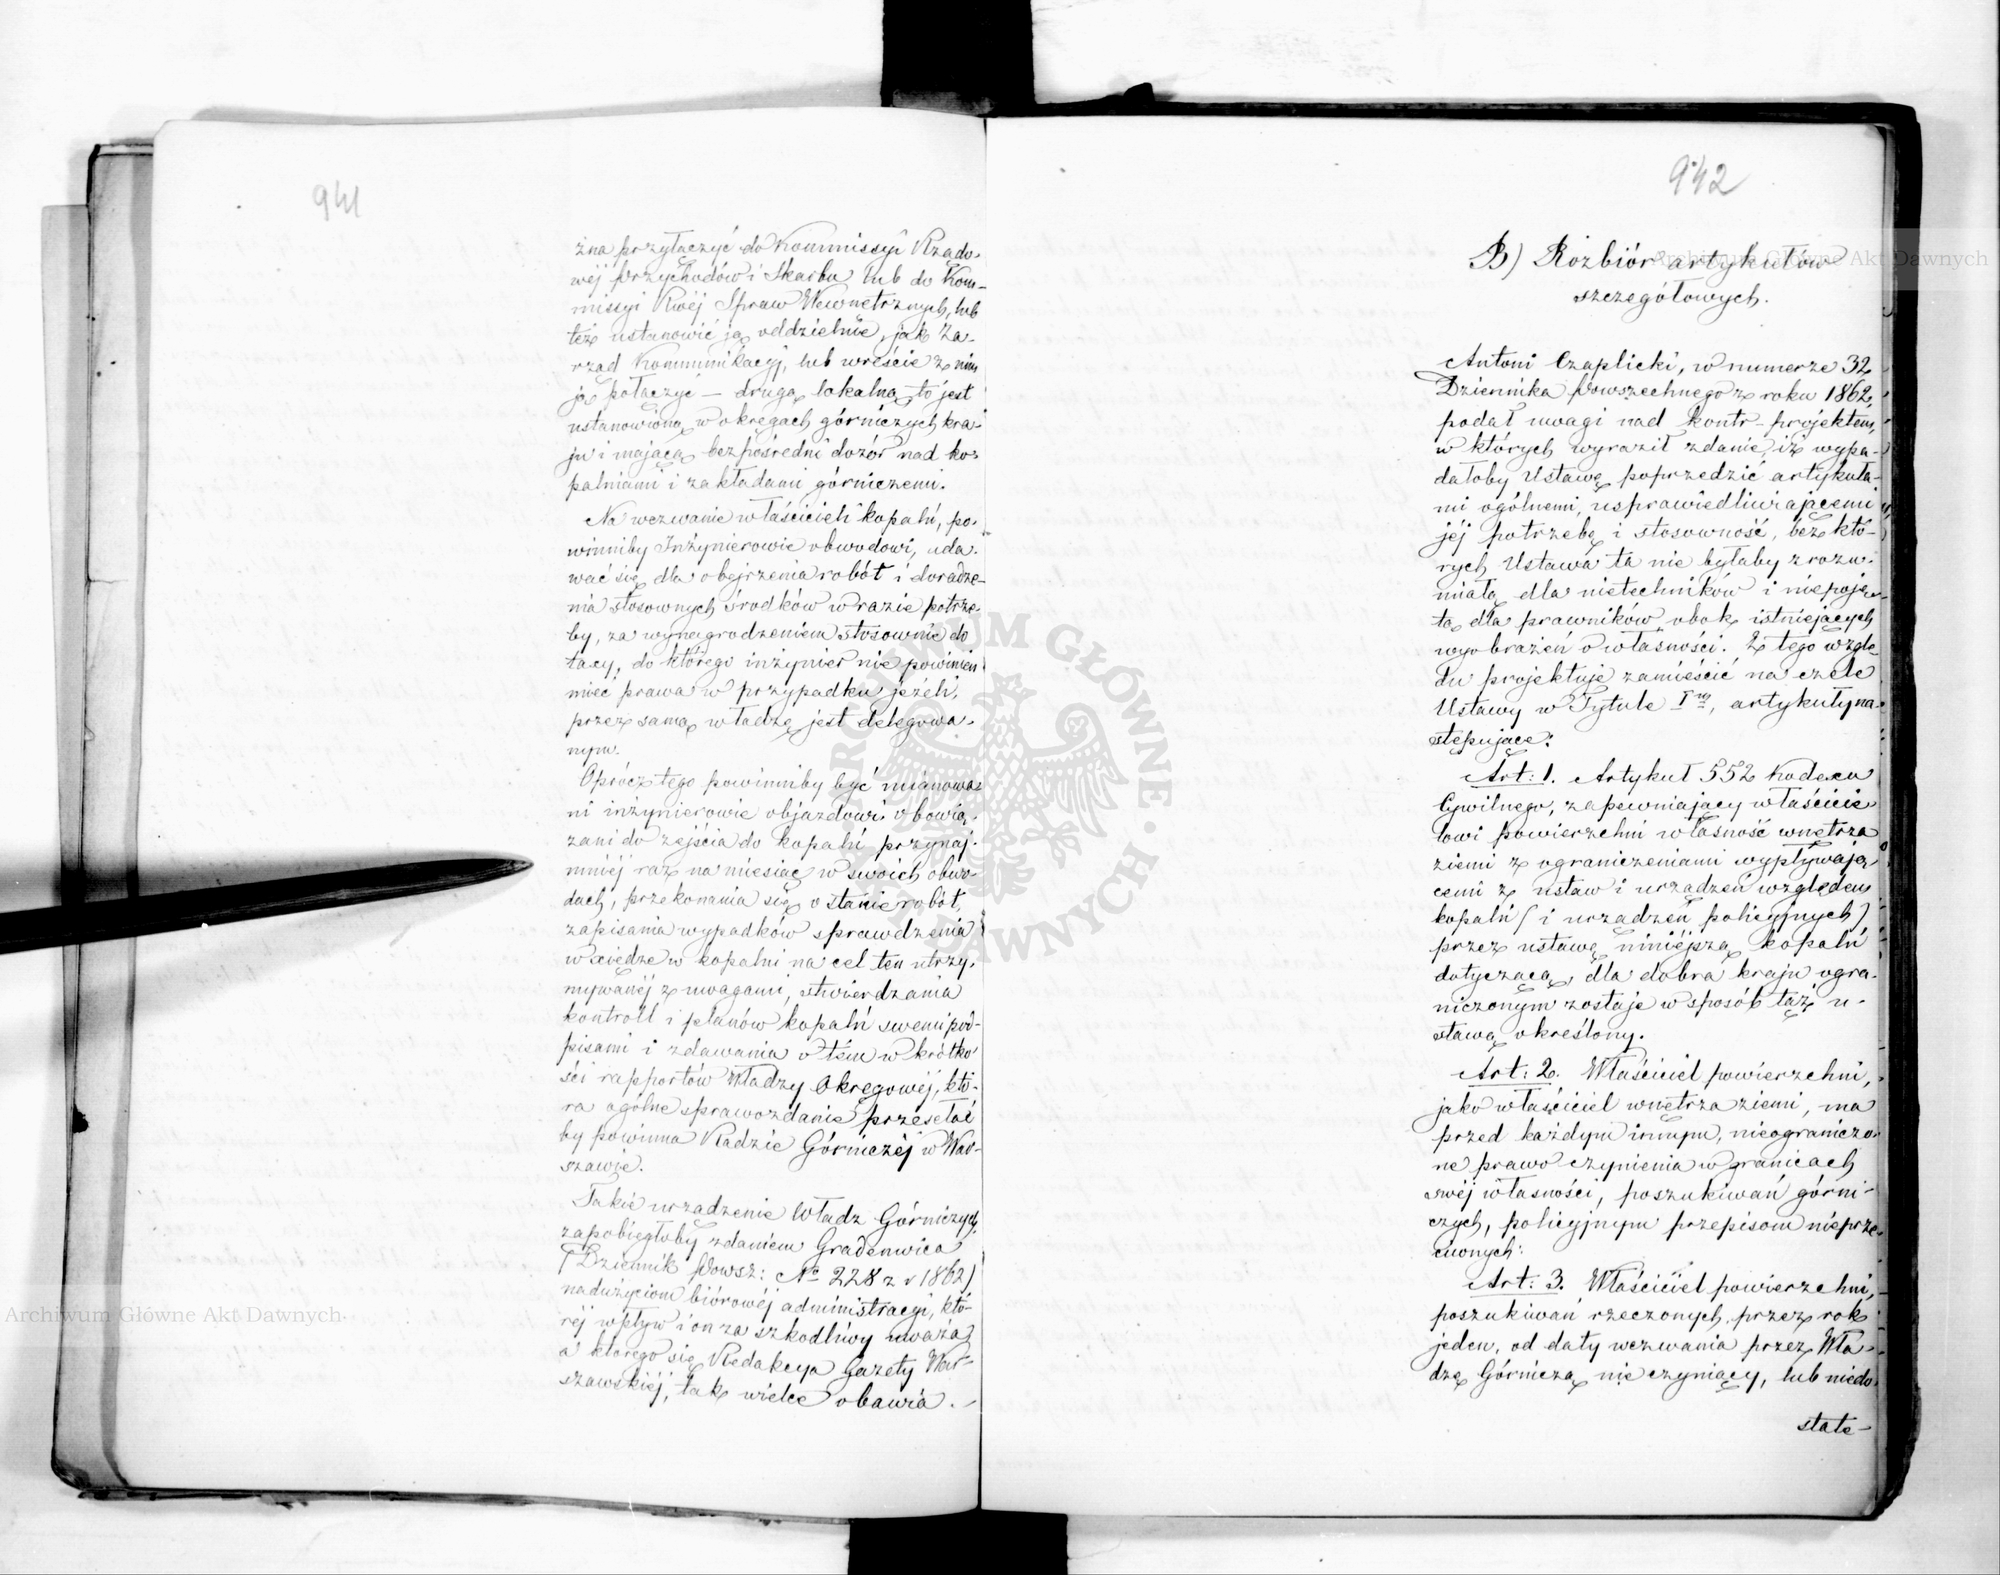 941
żna przyłączyć do Kommissyi Rządo-
wéj Przychodów i Skarbu lub do Kom-
missyi Rwéj Spraw Wewnętrznych, lub
też ustanowić ją oddzielnie, jak Za-
rząd Kommunikacyj, lub wreście z nim
ją połączyć — drugą lokalną, to jest
ustanowioną w okręgach górniczych kra-
ju i mającą bezpośredni dozór nad ko-
palniami i zakładami górniczemi.
Na wezwanie właścicieli kopalń, po-
winniby Inżynierowie obwodowi, uda-
wać się dla obejrzenia robót i doradze-
nia stosownych środków w razie potrze-
by, za wynagrodzeniem stosownie do
tacy, do którego inżynier nie powinien
mieć prawa w przypadku jeżeli,
przez samą władzę jest delegowa-
nym.
Oprócz tego powinniby być mianowa-
ni inżynierowie objazdowi obowią-
zani do zejścia do kopalń przynaj-
mniéj raz na miesiąc w swoich obwo-
dach, przekonania się o stanie robót,
zapisania wypadków sprawdzenia
w xiędze w kopalni na cel ten utrzy-
mywanéj z uwagami, stwierdzania
kontroll i planów kopalń swemi pod-
pisami i zdawania o tém w krótko-
ści rapportów Władzy Okręgowéj, któ-
ra ogólne sprawozdanie przesełać
by powinna Radzie Górniczéj w War-
szawie.
Takie urządzenie Władz Górniczych
zapobiegłoby zdaniem Gradenwica
(Dziennik Powsz: No 228 z r 1862)
nadużyciom biórowéj administracyi, któ-
réj wpływ i on za szkodliwy uważa,
a którego się Redakcya Gazety War-
szawskiéj, tak wielce obawia. —
942
B) Rozbiór artykułów
szczegółowych.
Antoni Czaplicki, w numerze 32
Dziennika Powszechnego z roku 1862,
podał uwagi nad kontr-projektem,
w których wyraził zdanie, iż wypa-
dałoby Ustawę poprzedzić artykuła-
mi ogólnemi, usprawiedliwiającemi
jéj potrzebę i stosowność, bez któ-
rych Ustawa ta nie byłaby zrozu-
miałą dla nietechników i niepoję-
tą dla prawników obok istniejących
wyobrażeń o własności. Z tego wzglę-
du projektuje zamieścić na czele
Ustawy w Tytule I-m, artykuły na-
stępujące:
Art: 1. Artykuł 552 Kodexu
Cywilnego, zapewniający właścicie-
lowi powierzchni własność wnętrza
ziemi z ograniczeniami wypływają-
cemi z ustaw i urządzeń względem
kopalń (i urządzeń policyjnych)
przez ustawę niniéjszą kopalń
dotyczącą, dla dobra kraju ogra-
niczonym zostaje w sposób tąż u-
stawą określony.
Art: 2. Właściciel powierzchni,
jako właściciel wnętrza ziemi, ma
przed każdym innym, nieograniczo-
ne prawo czynienia w granicach
swéj własności, poszukiwań górni-
czych, policyjnym przepisom nieprze-
ciwnych:
Art: 3. Właściciel powierzchni,
poszukiwań rzeczonych, przez rok
jeden, od daty wezwania przez Wła-
dzę Górniczą nie czyniący, lub niedo-
state-
Archiwum Główne Akt Dawnych
Archiwum Główne Akt Dawnych
ARCHIWUM GŁÓWNE AKT DAWNYCH